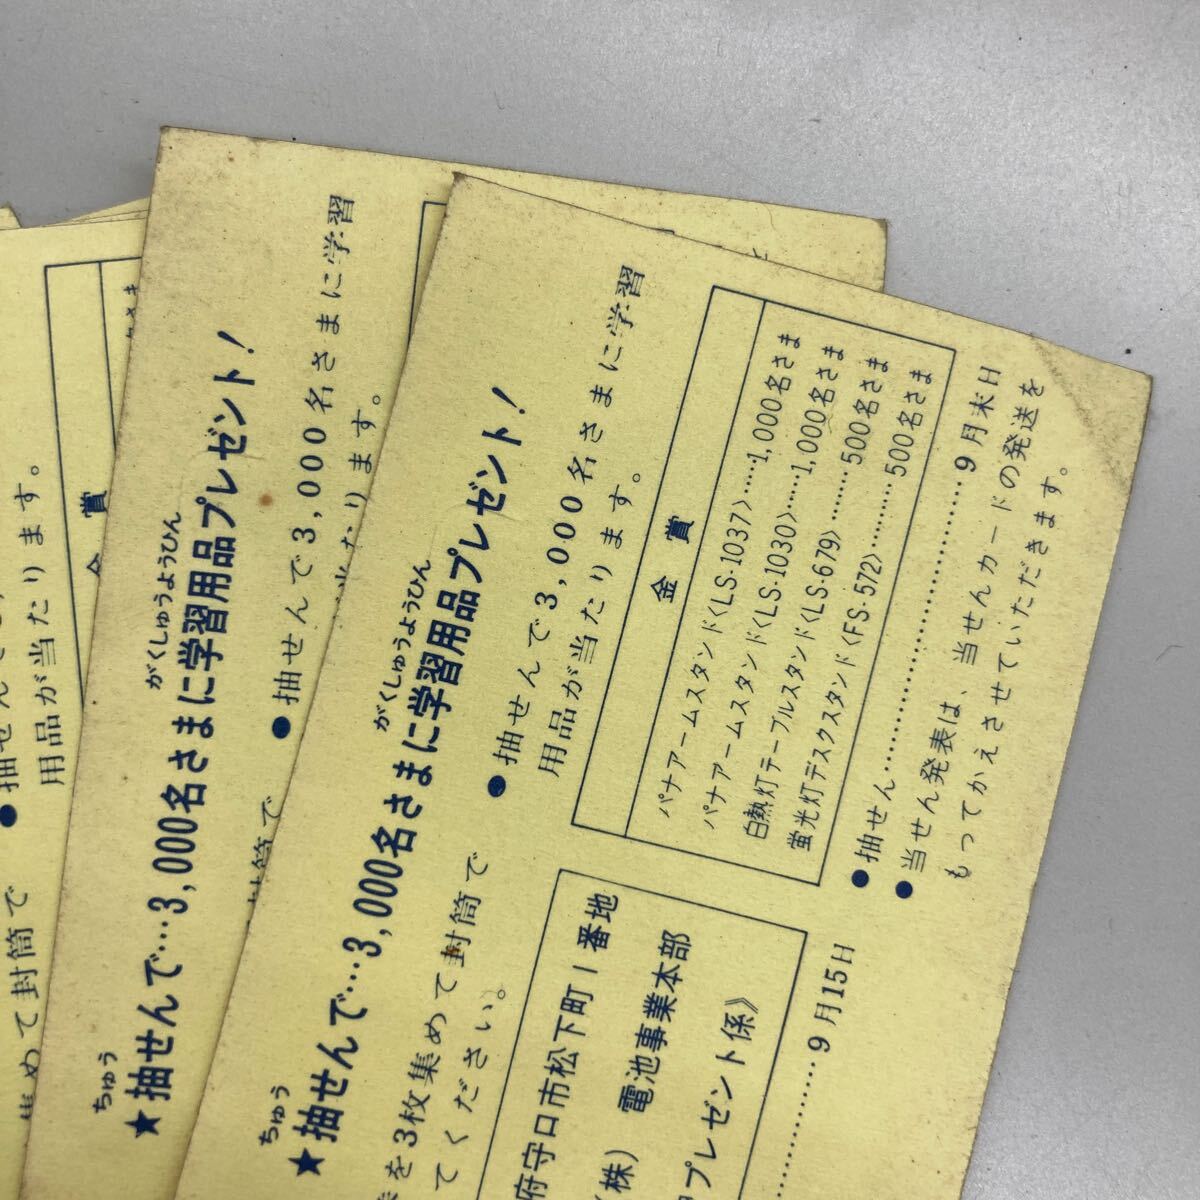 ちゅう がくしゅうようひん
★抽せんで…3,000名さまに学習用品プレゼント！
を3枚集めて封筒で
てください。
府守口市松下町1番地
(株) 電池事業本部
プレゼント係》
9月15日
●抽せんで3,000名さまに学習
用品が当たります。
金賞
パナアームスタンド〈LS-1037〉……1,000名さま
パナアームスタンド〈LS-1030〉……1,000名さま
白熱灯テーブルスタンド〈LS-679〉……500名さま
蛍光灯デスクスタンド〈FS-572〉………500名さま
●抽せん………………………9月末日
●当せん発表は、当せんカードの発送を
もってかえさせていただきます。
ちゅう がくしゅうようひん
★抽せんで…3,000名さまに学習用品プレゼント！
封筒で
●抽せんで3,000名さまに学習
当たります。
集めて封筒で
●抽せんで
用品が当たります。
金賞